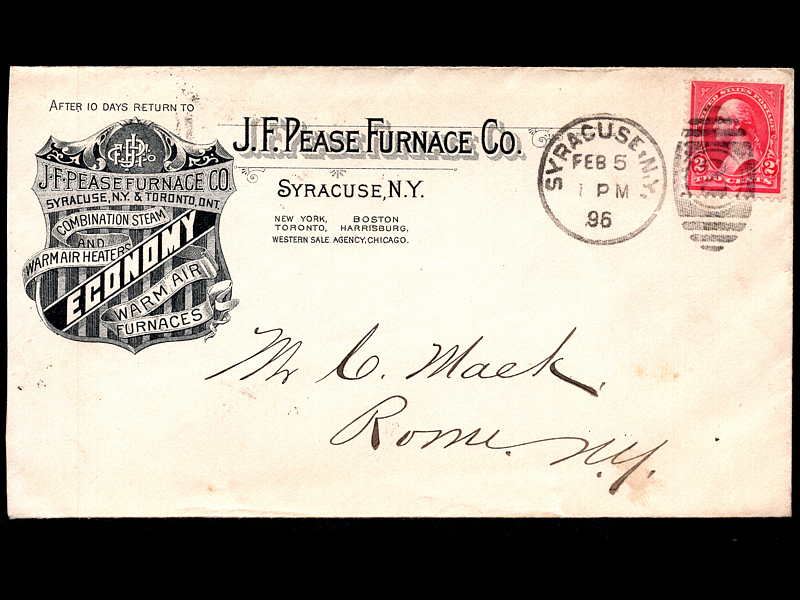 AFTER 10 DAYS RETURN TO
J.F. PEASE FURNACE CO.
SYRACUSE, N.Y. & TORONTO, ONT.
COMBINATION STEAM
AND
WARM AIR HEATERS
ECONOMY
WARM AIR
FURNACES
J.F. PEASE FURNACE CO.
SYRACUSE, N.Y.
NEW YORK, BOSTON
TORONTO, HARRISBURG,
WESTERN SALE AGENCY, CHICAGO.
SYRACUSE, N.Y.
FEB 5
1 PM
96
UNITED STATES POSTAGE
2 2
TWO CENTS
Mr C. Mack.
Rome. N.Y.